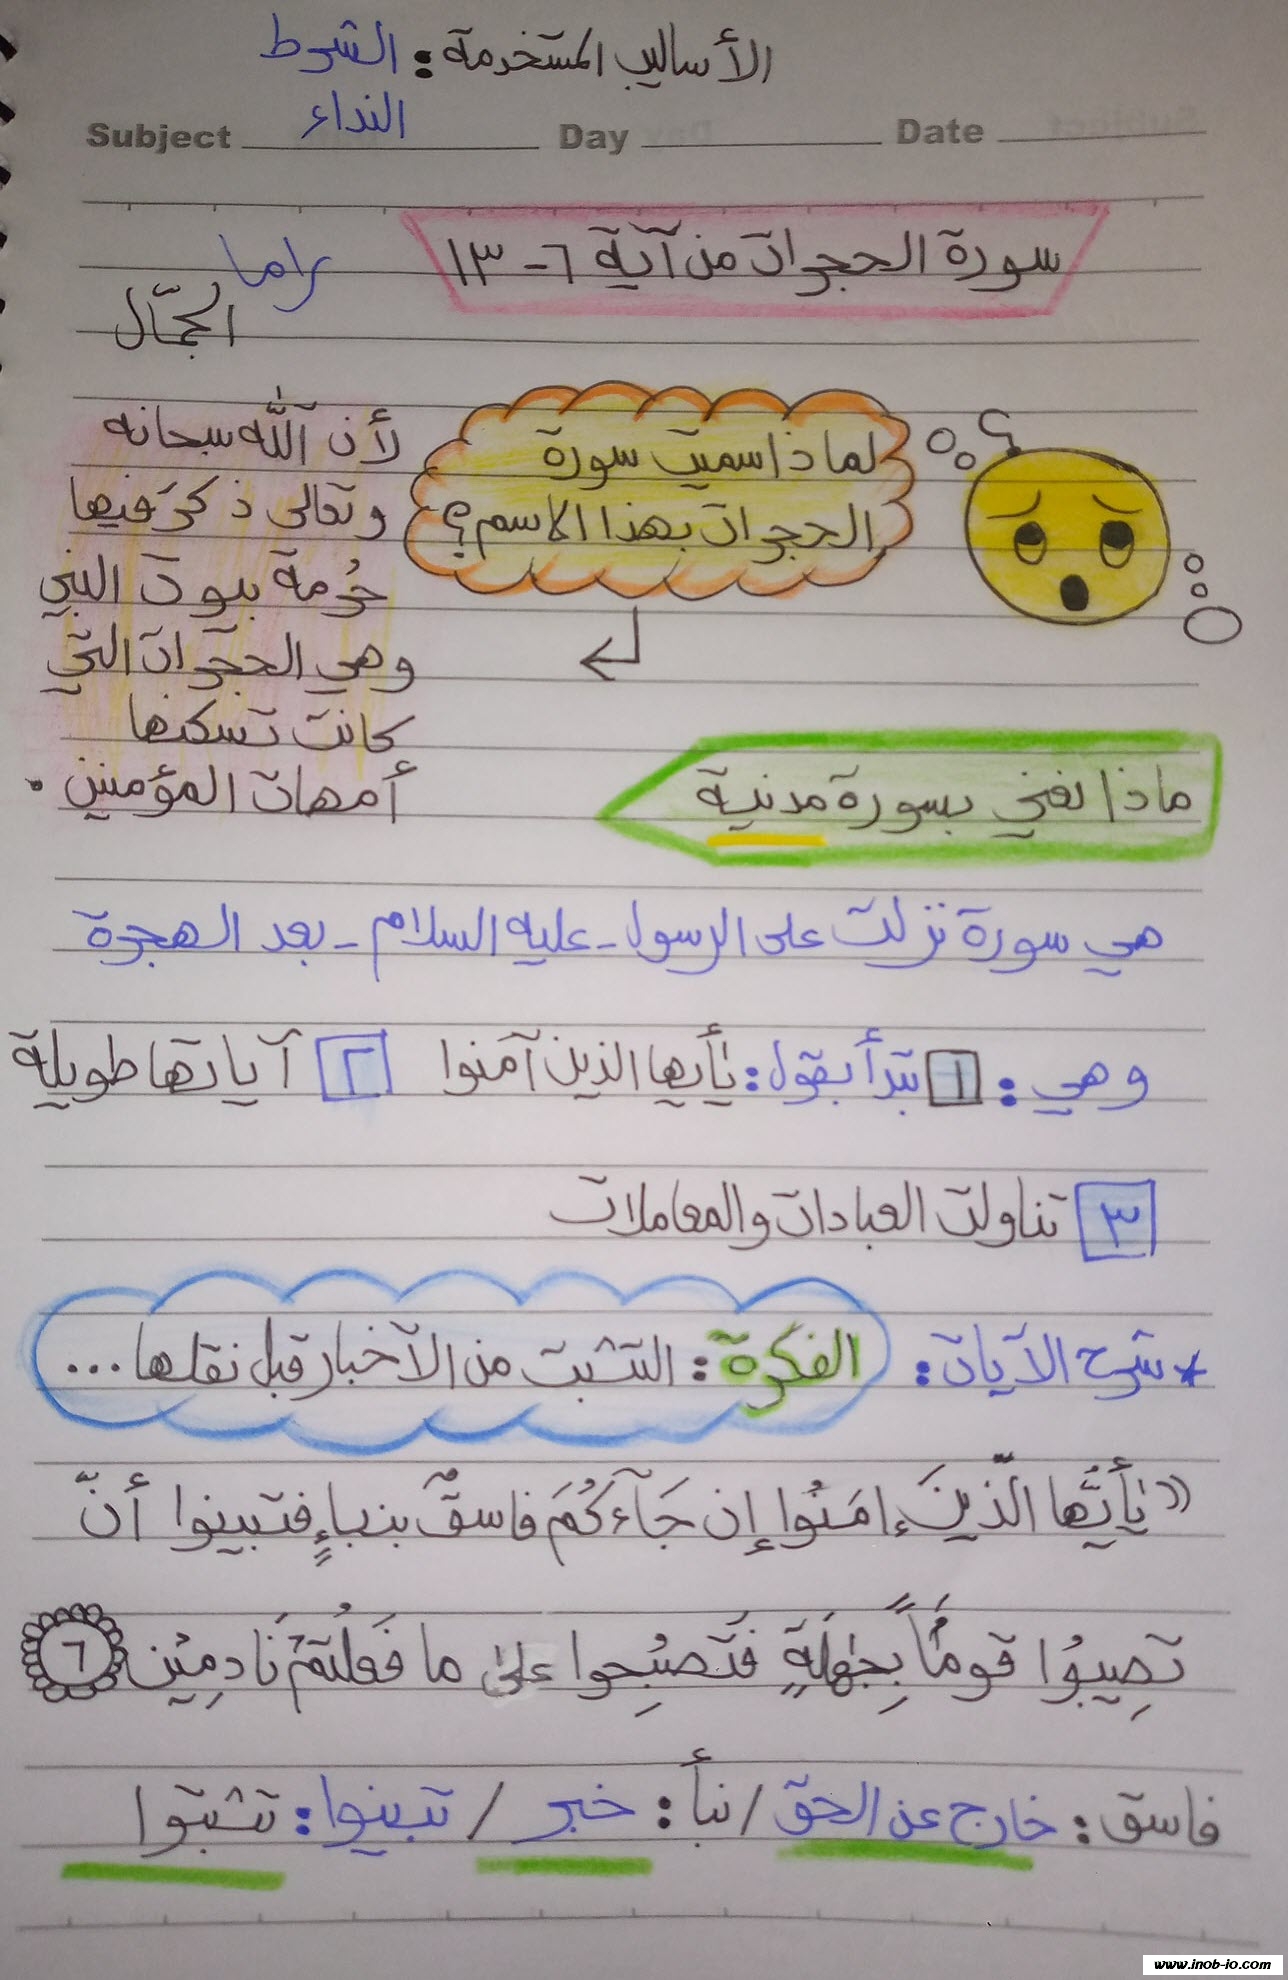 الأساليب المستخدمة: الشرط
النداء
Subject Day Date
سورة الحجرات من آية ٦-١٣
راما
الجمّال
لماذا سميت سورة
الحجرات بهذا الاسم؟
لأن الله سبحانه
وتعالى ذكرَ فيها
حُرمة بيوت النبي
وهي الحجرات التي
كانت تسكنها
أمهات المؤمنين.
ماذا نعني بسورة مدنية
هي سورة نزلت على الرسول - عليه السلام - بعد الهجرة
وهي: ١ تبدأ بقول: يٰأيها الذين آمنوا ٢ آياتها طويلة
٣ تناولت العبادات والمعاملات
* شرح الآيات: الفكرة: التثبت من الأخبار قبل نقلها...
«يٰأيُّها الّذينَ ءامَنُوا إِن جَآءَكُمَ فاسقٌ بنباءٍ فتبينوا أنّ
تصِيبُوا قومًا بِجَهٰلَةٍ فَتَصبُحِوا علىٰ ما فَعَلْتُمْ نَادِمِيْن ٦
فاسق: خارج عن الحق / نبأ: خبر / تبينوا: تثبتوا
www.inob-io.com